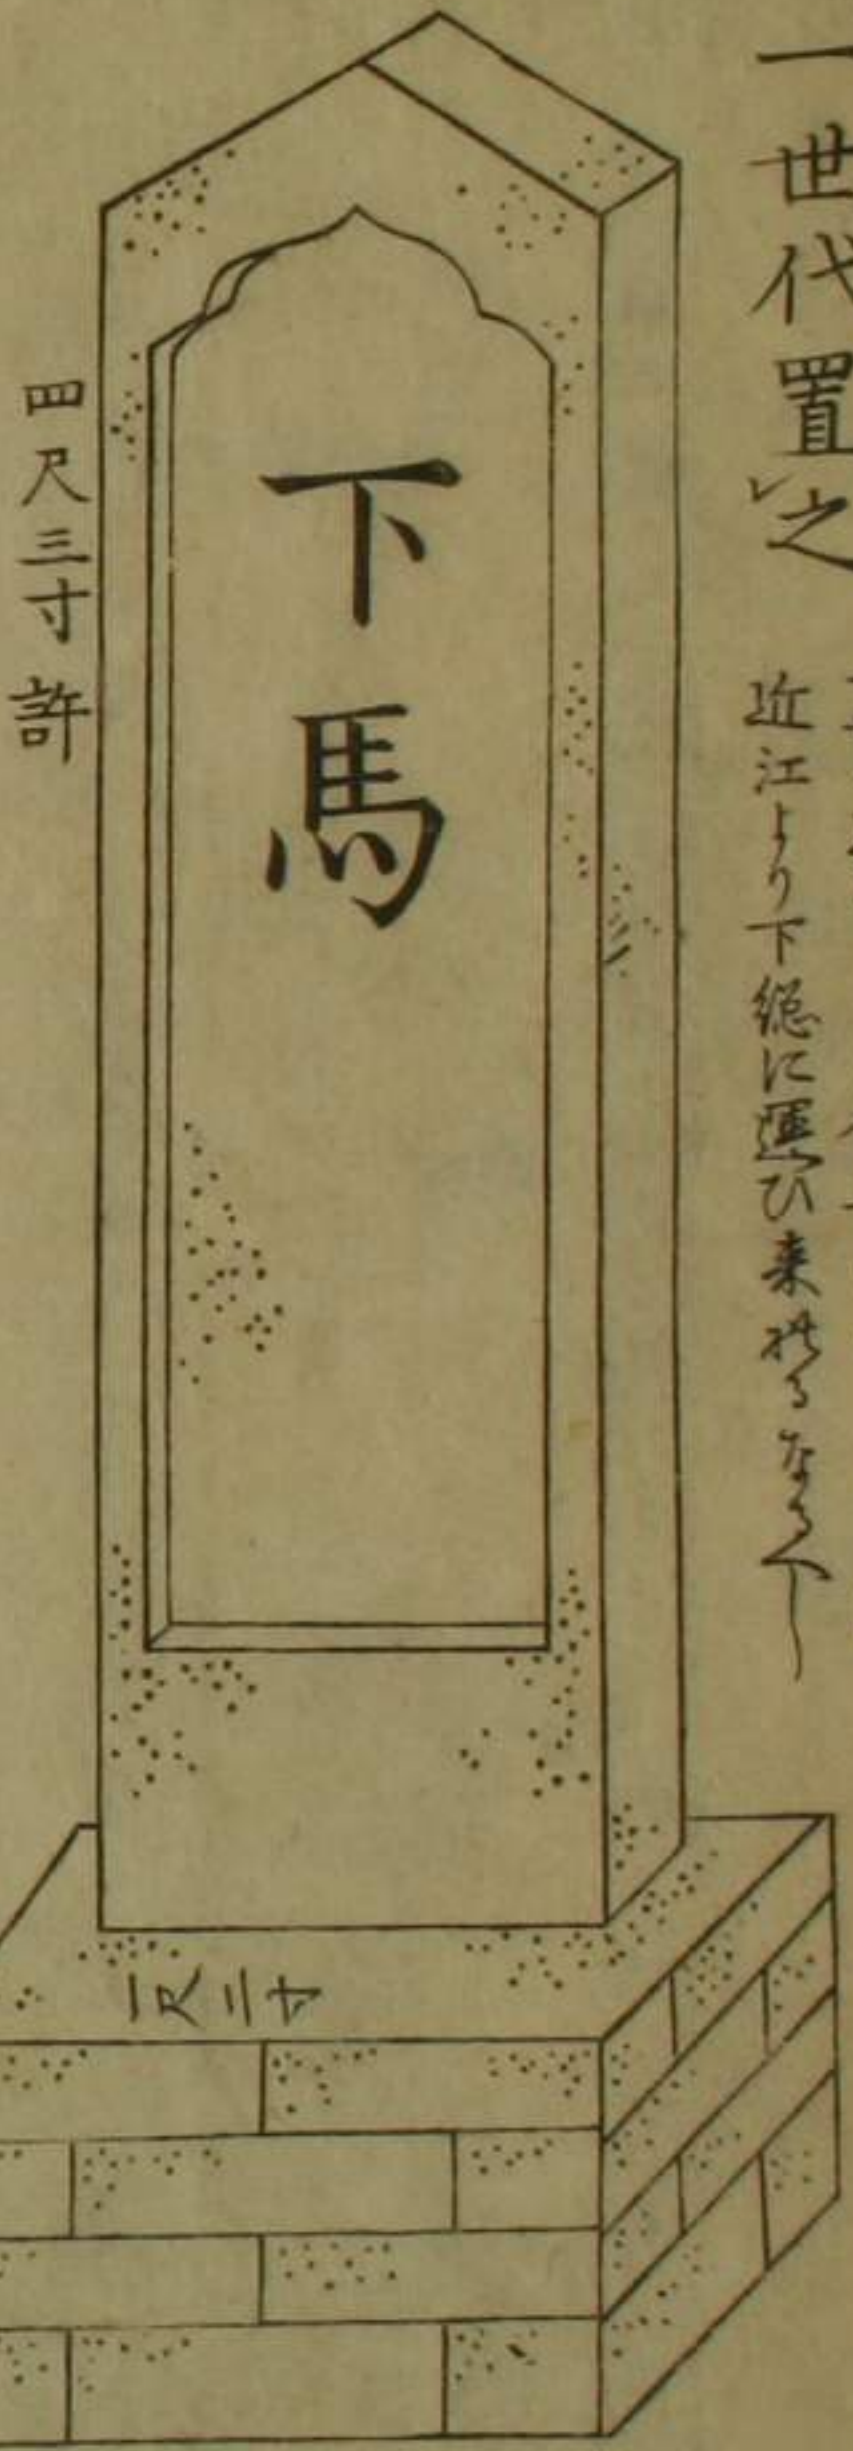 一世代置㆑之
近江より下総に運ひ来れるなるへし
下馬
四尺三寸許
一尺三寸